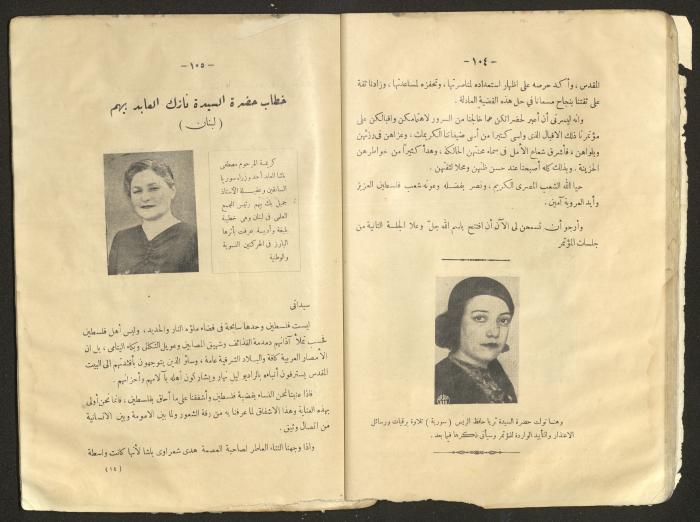 — ١٠٤ —
المقدس ، وأكد حرصه على اظهار استعداده لمناصرتها ، وتحفزه لمساعدتها ، وزادنا ثقة
على ثقتنا بنجاح مسعانا فى حل هذه القضية العادلة .
وانه ليسرنى أن أعبر لحضراتكن عما خالجنا من السرور لاهتمامكن واقبالكن على
مؤتمرنا ذلك الاقبال الذى واسى كثيرا من أسى ضيفاتنا الكريمات ، وعزاهن فى رزئهن
وبلواهن ، فأشرق شعاع الأمل فى سماء محنتهن الحالكة ، وهدأ كثيرا من خواطرهن
الحزينة . وبذلك كله أصبحنا عند حسن ظنهن ومحلا لثقتهن .
حيا الله الشعب المصرى الكريم ، ونصر بفضله وعونه شعب فلسطين العزيز
وأيد العروبة آمين .
وأرجو أن تسمحن لى الآن أن افتتح باسم الله جل وعلا الجلسة الثانية من
جلسات المؤتمر
وهنا تولت حضرة السيدة ثريا حافظ الريس ( سورية ) تلاوة برقيات ورسائل
الاعتذار والتأييد الواردة للمؤتمر وسيأتى ذكرها فيما بعد .
— ١٠٥ —
خطاب حضرة السيدة نازك العابد بيهم
( لبنان )
كريمة المرحوم مصطفى
باشا العابد أحد وزراء سوريا
السابقين وعقيلة الأستاذ
جميل بك بيهم رئيس المجمع
العلمى فى لبنان وهى خطيبة
بليغة وأديبة عرفت بأثرها
البارز فى الحركتين النسوية
والوطنية
سيداتى
ليست فلسطين وحدها سابحة فى فضاء ملؤه النار والحديد ، وليس أهل فلسطين
فحسب تملأ آذانهم دمدمة القذائف وشهيق المصابين وعويل الثكالى وبكاء اليتامى ، بل ان
الأمصار العربية كافة والبلاد الشرقية عامة ، وسائر الذين يتوجهون بأفئدتهم الى البيت
المقدس يسترقون أنباءه بالراديو ليل نهار ويشاركون أهله بآلامهم وأحزانهم .
فاذا عنينا نحن النساء بقضية فلسطين وأشفقنا على ما أحاق بفلسطين ، فانما نحن أولى
بهذه العناية وهذا الاشفاق لما عرفنا به من رقة الشعور ولما بين الامومة وبين الانسانية
من اتصال وثيق .
واذا وجهنا الثناء العاطر لصاحبة العصمة هدى شعراوى باشا لأنها كانت واسطة
( ١٤ )